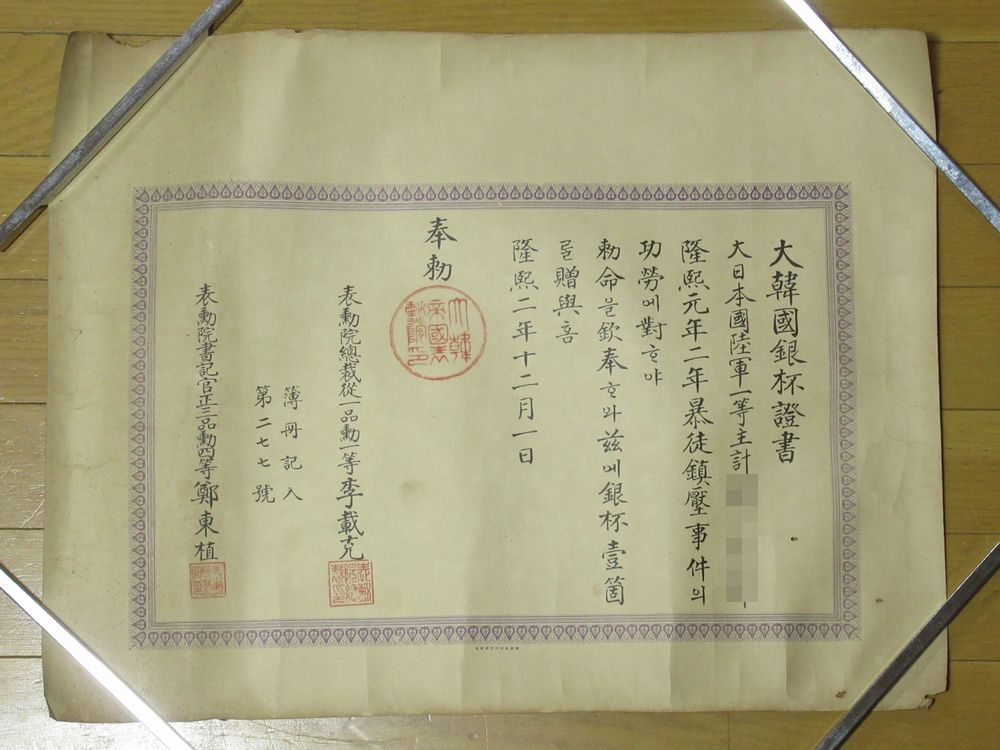 大韓國銀杯證書
大日本國陸軍一等主計
隆熙元年二年暴徒鎮壓事件의
功勞에對ᄒᆞ야
勅命을欽奉ᄒᆞ와玆에銀杯壹箇
를贈與홈
隆熙二年十二月一日
奉勅
大韓帝國表勳院印
表勳院總裁從一品勳一等李載克
簿冊記入
第二七七號
表勳院書記官正三品勳四等鄭東植